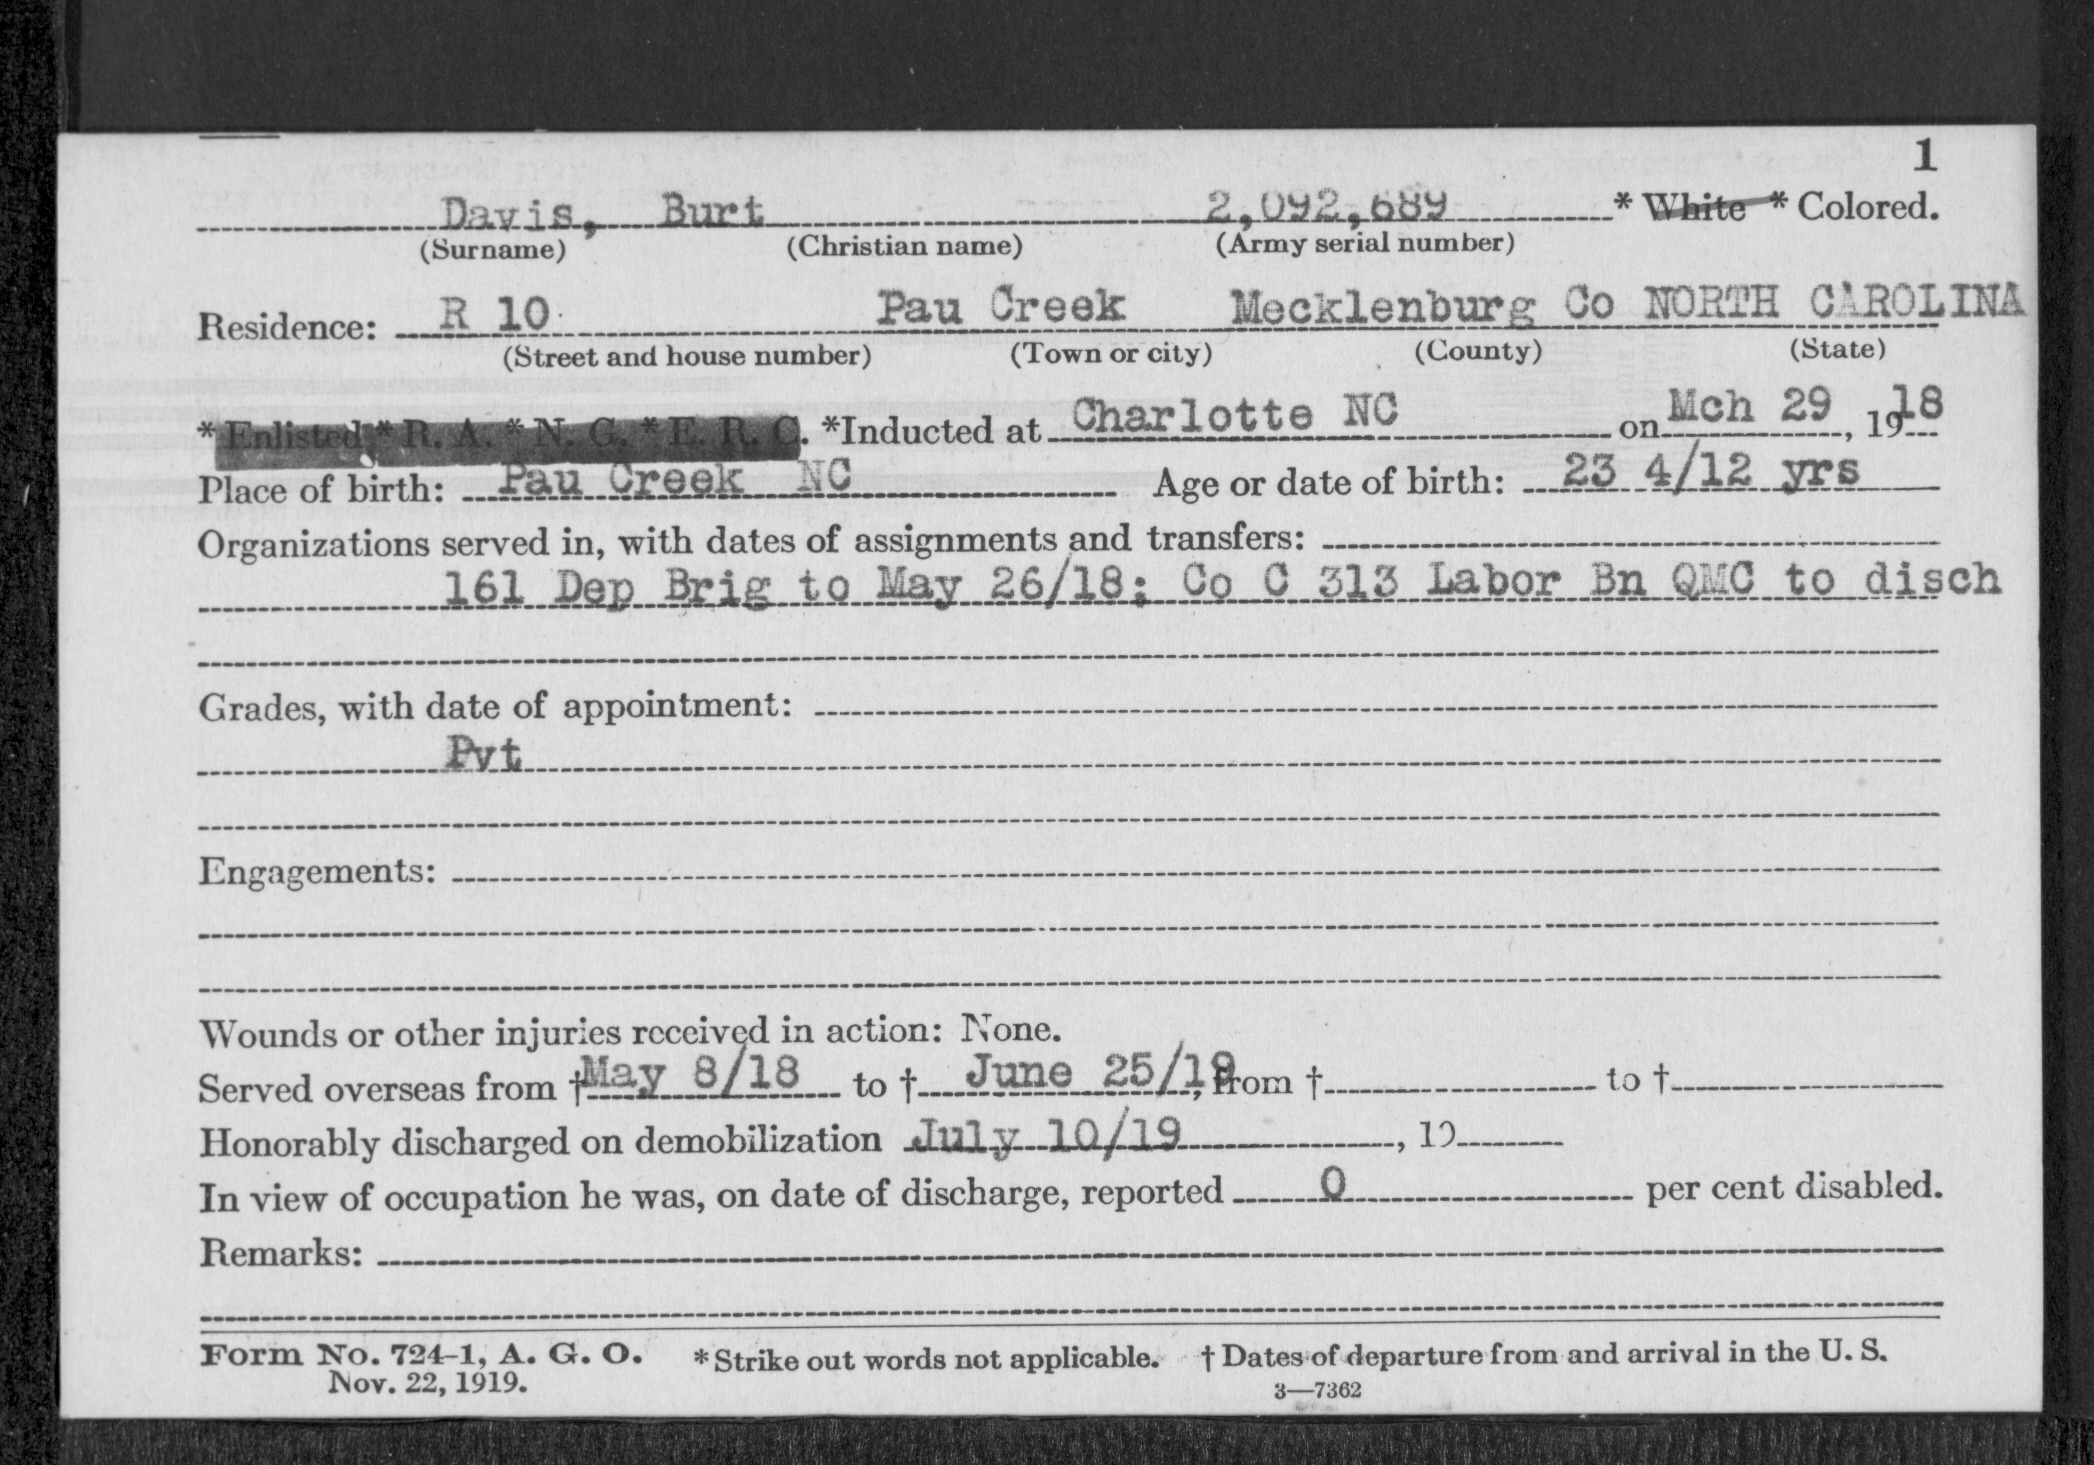 1
Davis, Burt 2,092,689 * White * Colored.
(Surname) (Christian name) (Army serial number)
Residence: R 10 Pau Creek Mecklenburg Co NORTH CAROLINA
(Street and house number) (Town or city) (County) (State)
* Enlisted * R. A. * N. G. * E. R. C. *Inducted at Charlotte NC on Mch 29, 1918
Place of birth: Pau Creek NC Age or date of birth: 23 4/12 yrs
Organizations served in, with dates of assignments and transfers:
161 Dep Brig to May 26/18; Co C 313 Labor Bn QMC to disch
Grades, with date of appointment:
Pvt
Engagements:
Wounds or other injuries received in action: None.
Served overseas from † May 8/18 to † June 25/19, from † to †
Honorably discharged on demobilization July 10/19, 19
In view of occupation he was, on date of discharge, reported 0 per cent disabled.
Remarks:
Form No. 724-1, A. G. O. * Strike out words not applicable. † Dates of departure from and arrival in the U. S.
Nov. 22, 1919. 3—7362